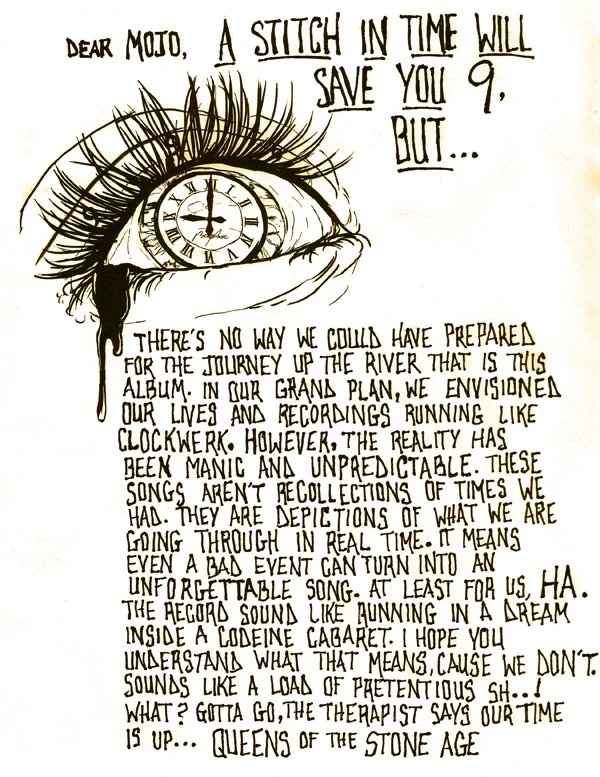 DEAR MOJO, A STITCH IN TIME WILL
SAVE YOU 9,
BUT...
THERE'S NO WAY WE COULD HAVE PREPARED
FOR THE JOURNEY UP THE RIVER THAT IS THIS
ALBUM. IN OUR GRAND PLAN, WE ENVISIONED
OUR LIVES AND RECORDINGS RUNNING LIKE
CLOCKWERK. HOWEVER, THE REALITY HAS
BEEN MANIC AND UNPREDICTABLE. THESE
SONGS AREN'T RECOLLECTIONS OF TIMES WE
HAD. THEY ARE DEPICTIONS OF WHAT WE ARE
GOING THROUGH IN REAL TIME. IT MEANS
EVEN A BAD EVENT CAN TURN INTO AN
UNFORGETTABLE SONG. AT LEAST FOR US, HA.
THE RECORD SOUND LIKE RUNNING IN A DREAM
INSIDE A CODEINE CABARET. I HOPE YOU
UNDERSTAND WHAT THAT MEANS, CAUSE WE DON'T.
SOUNDS LIKE A LOAD OF PRETENTIOUS SH..!
WHAT? GOTTA GO, THE THERAPIST SAYS OUR TIME
IS UP... QUEENS OF THE STONE AGE